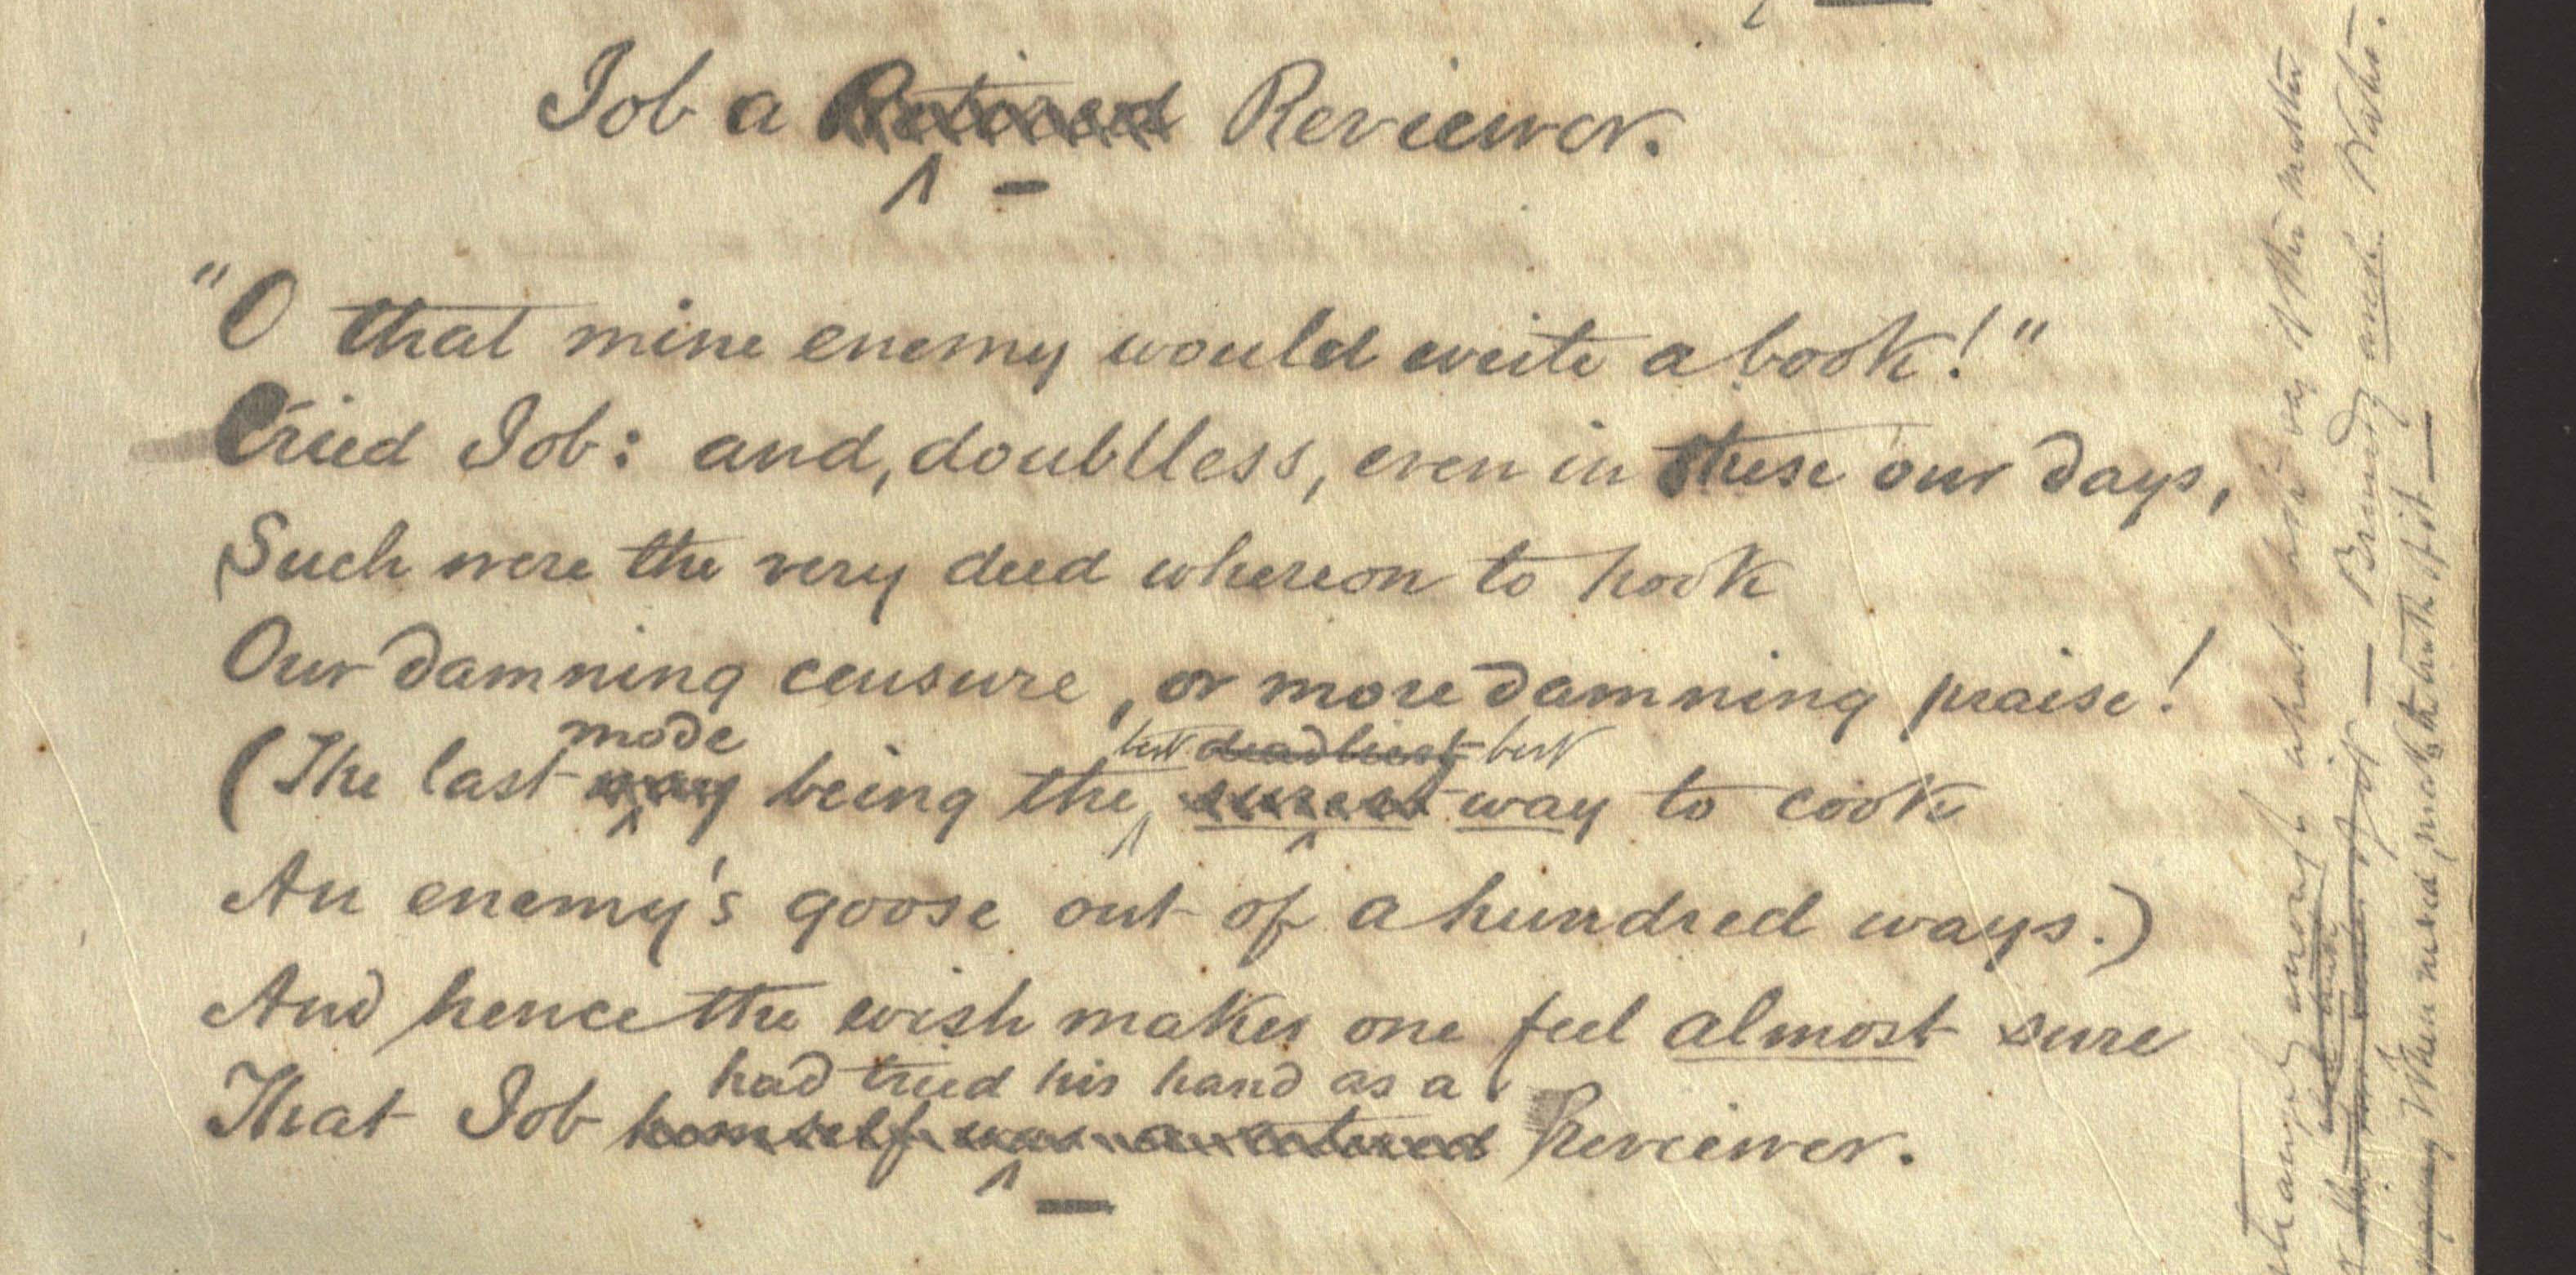 Job a Retired Reviewer.
"O that mine enemy would write a book!"
Cried Job: and, doubtless, even in these our days,
Such were the very deed whereon to hook
Our damning censure, or more damning praise!
mode best deadliest best
(The last way being the surest way to cook
An enemy's goose out of a hundred ways.)
And hence the wish makes one feel almost sure
had tried his hand as a
That Job himself was a retired Reviewer.
strangely enough what
of it — Brandy and Water.
When mixed, the truth of it —